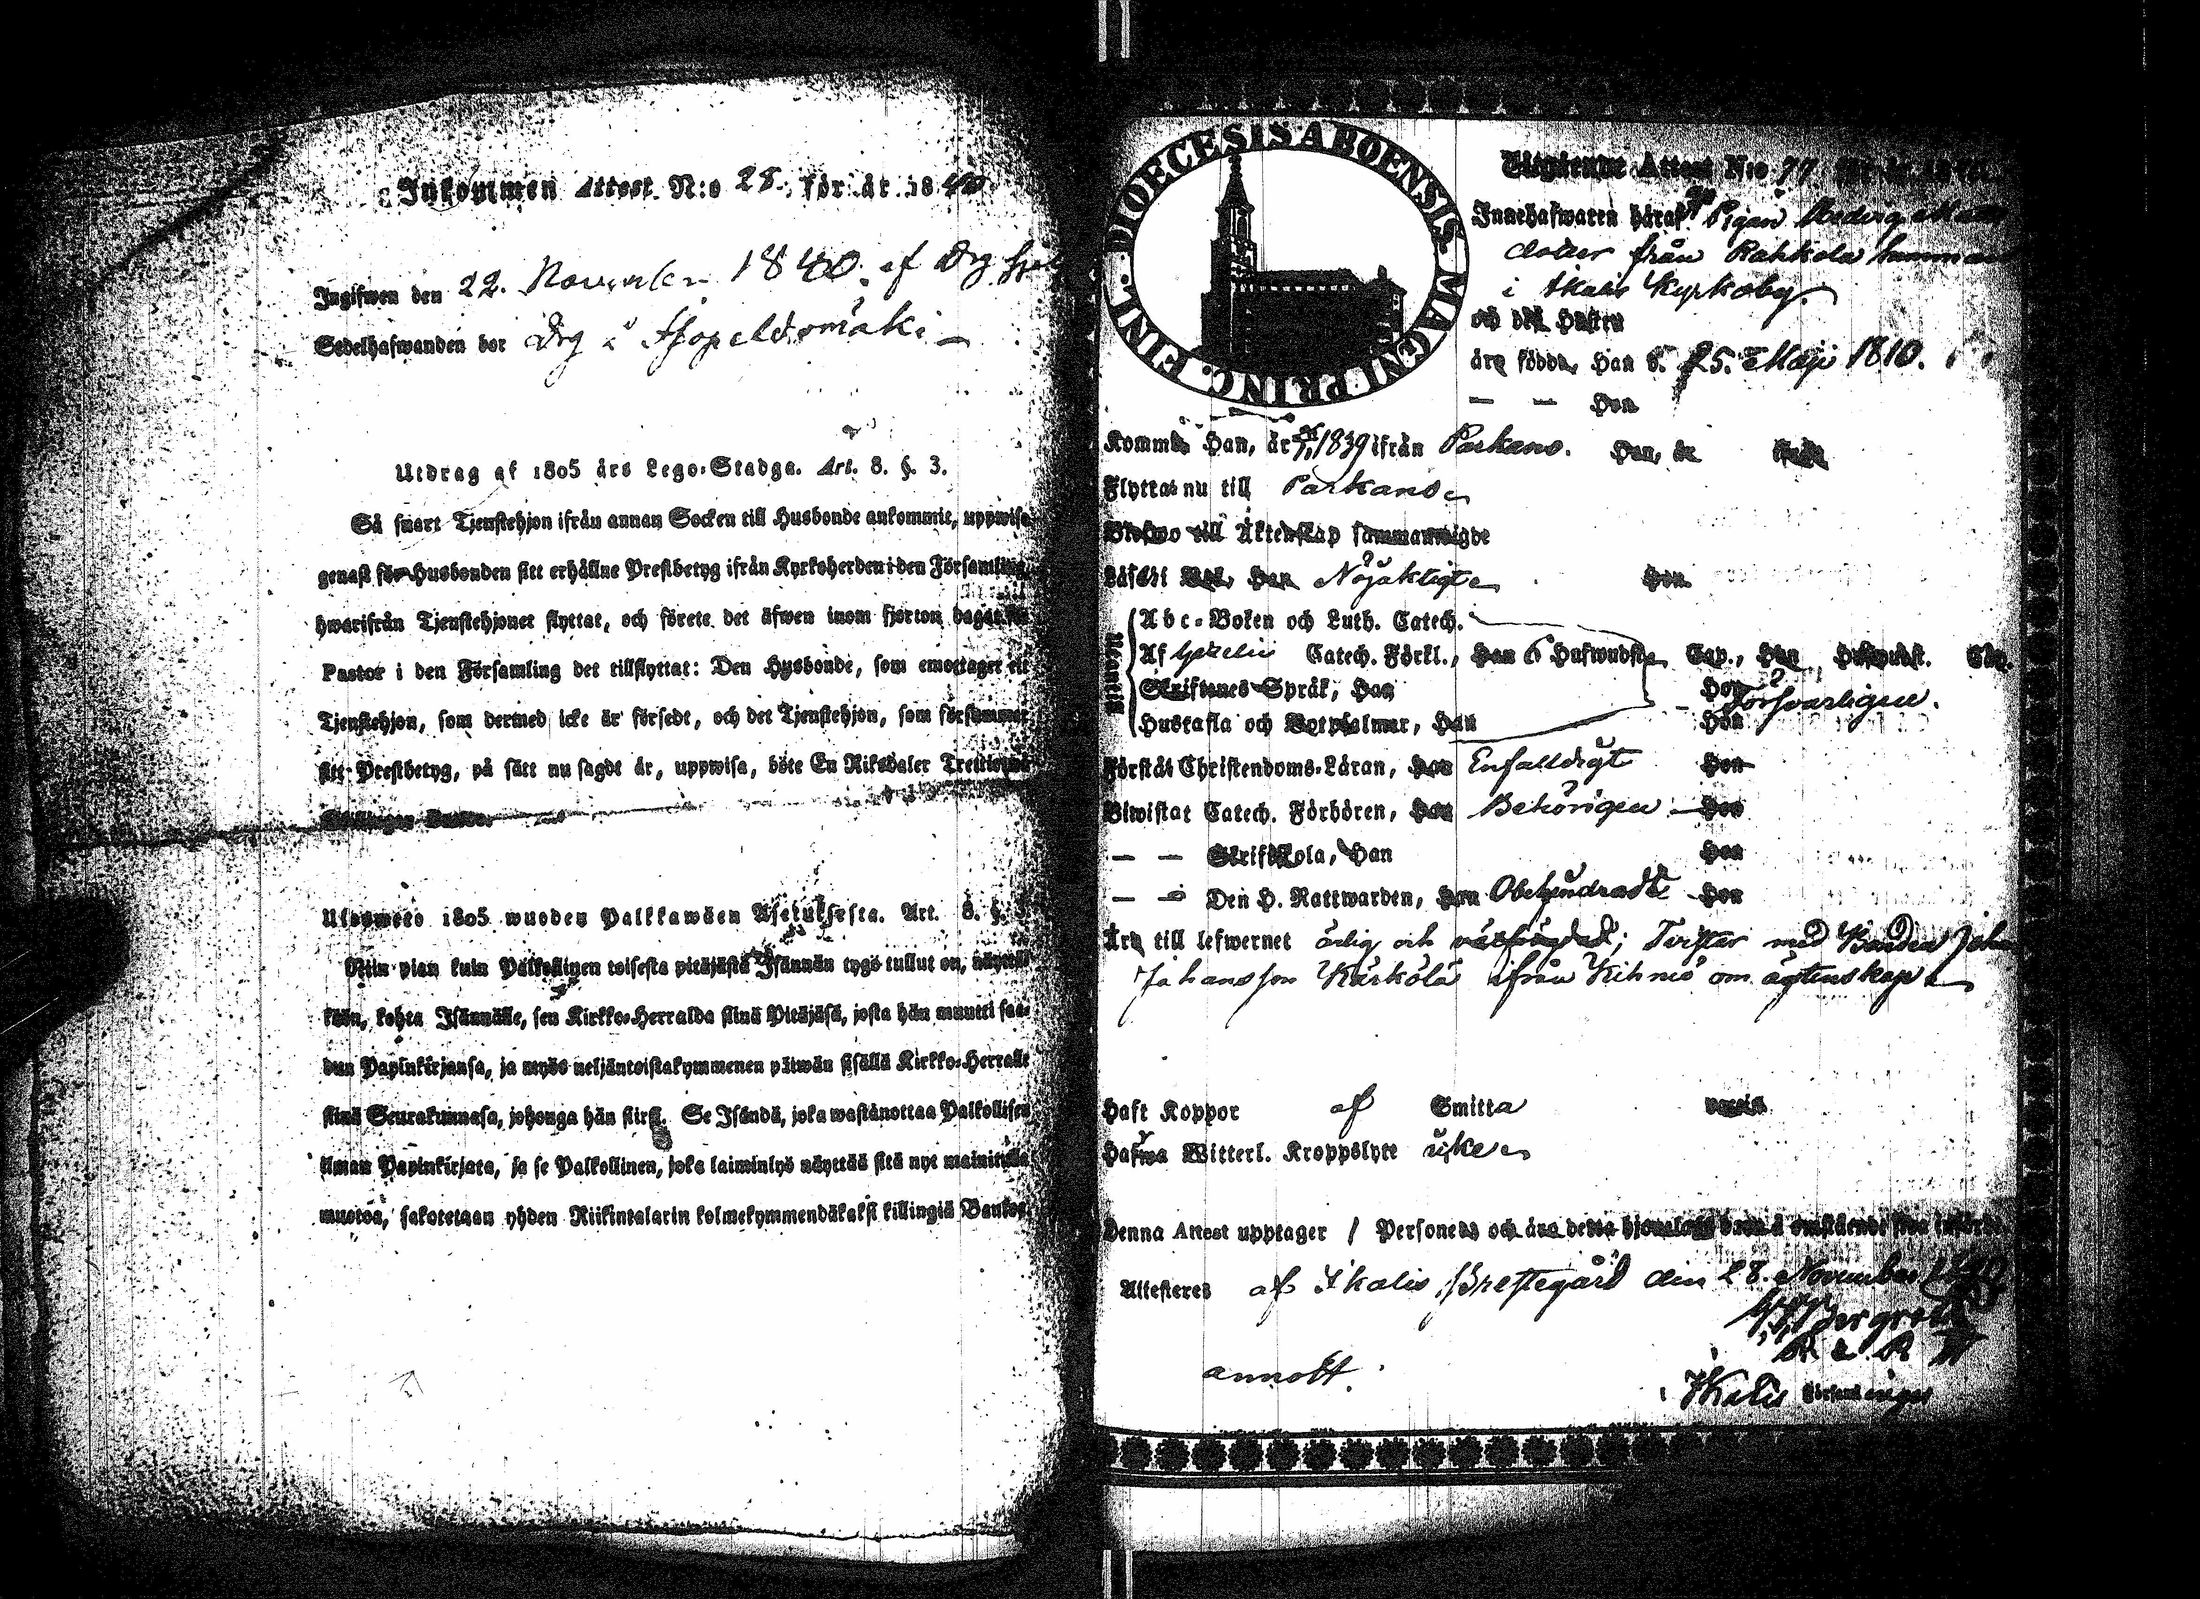 Inkommen Attest N:o 28. för år 1840.
Ingifwen den 22. November 1840. af Drg
Sedelhafwanden bor Drg i
Utdrag af 1805 års Lego-Stadga. Art. 8. §. 3.
Så snart Tjenstehjon ifrån annan Socken till Husbonde ankommit, uppwise
genast för Husbonden sitt erhållne Prestbetyg ifrån Kyrkoherden i den Församling
hwarifrån Tjenstehjonet flyttat, och förete det äfwen inom fjorton dagar
Pastor i den Församling det tillflyttat: Den Husbonde, som emottager ett
Tjenstehjon, som dermed icke är försedt, och det Tjenstehjon, som försummer
sitt Prestbetyg, på sätt nu sagdt är, uppwisa, böte En Riksdaler Trettiotwå
Skillingar Banko.
Ulosweto 1805 wuoden Palkkawäen Asetuksesta. Art. 8. §. 3
Niin pian kuin Palkollinen toisesta pitäjästä Isännän tygö tullut on, näyttä
köön, kohta Isännälle, sen Kirkko-Herralda siinä Pitäjäsä, josta hän muutti saa-
dun Papinkirjansa, ja myös neljäntoistakymmenen päiwän sisällä Kirkko-Herralle
siinä Seurakunnasa, johonga hän siirsi. Se Isändä, joka wastanottaa Palkollisen
ilman Papinkirjata, ja se Palkollinen, joka laiminlyö näyttää sitä nyt mainitulla
muotoa, sakotetaan yhden Riikintalarin kolmekymmendäkaksi killingiä Bankos.
DIOECESIS ABOENSIS MAGNI PRINC. FINL.
Utgående Attest N:o 77
Innehafwaren häraf Pigan Hedvig
dotter från Rahkola
i Ikalis Kyrkoby.
och dess Hustru
äro födde, Han d. 25. Maji 1810.
— — Hon
Kommen Han, år 1839 ifrån Parkano. Hon, år ifrån
Flyttas nu till Parkano
Blefwo till Äktenskap sammanwigde
Läser i Bok, Han Nöjaktigt Hon
Utantill
Abc-Boken och Luth. Catech.
Af Gezelii Catech. Förkl., Han 6 Hufwudst. Cap., Hon Hufwudst. Cap.
Skriftenes Språk, Han Hon Försvarligen.
Hustafla och Botpsalmer, Han Hon
Förstår Christendoms-Läran, Han Enfalldigt Hon
Biwistat Catech. Förhören, Han Behörigen Hon
— — Skriftskola, Han Hon
— — Den H. Nattwarden, Han Obehindradt Hon
Äro till lefwernet ärlig och välfrägdad; Tvistar med Bonden
Johansson Kärkölä ifrån Kihniö om ägtenskap
Haft Koppor af Smitta
Hafwa Witterl. Kroppslyte icke
Denna Attest upptager 1 Personer och äro
Attesteres af Ikalis Prestegård den 28. November
Bergroth
annott.
Ikalis Församlingar